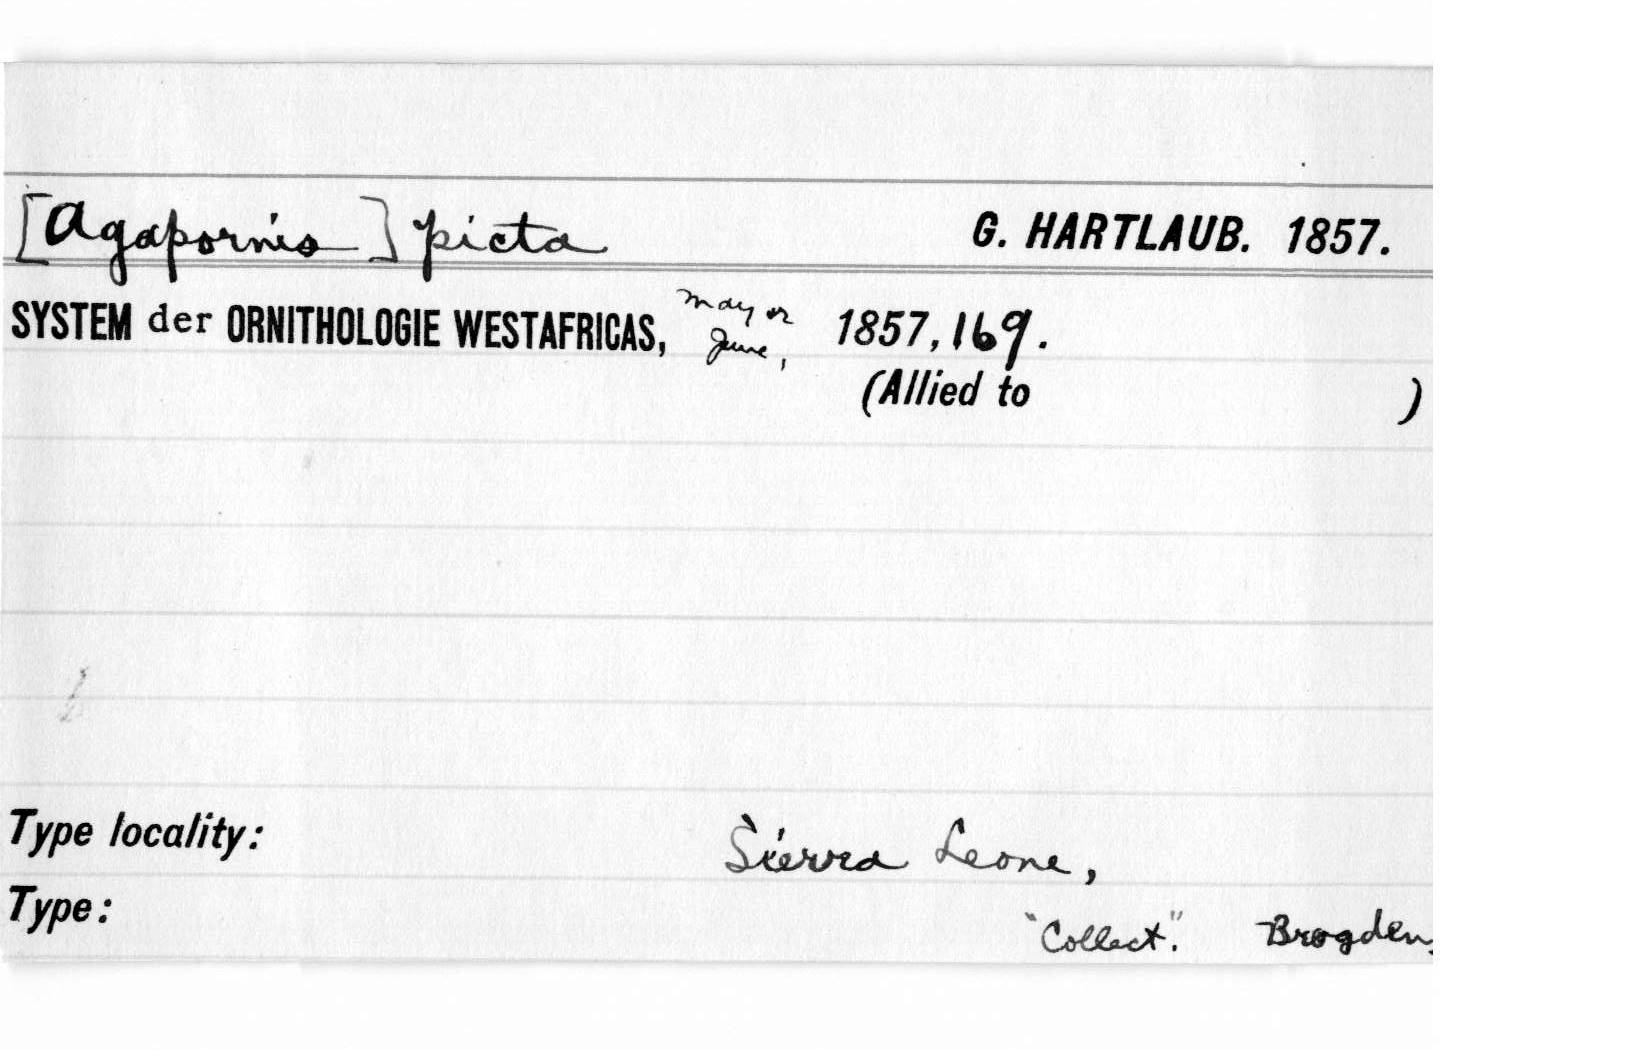 [Agapornis] picta G. HARTLAUB. 1857.
SYSTEM der ORNITHOLOGIE WESTAFRICAS, May or June, 1857, 169.
(Allied to )
Type locality: Sierra Leone,
Type: "Collect". Brogden,